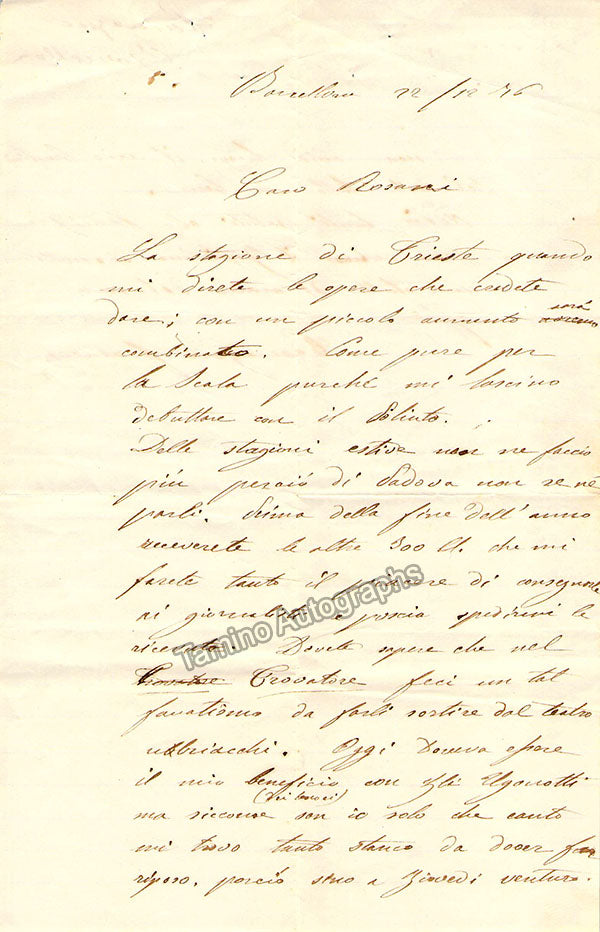 Barcellona 22/12 76
Caro Rosani
La stagione di Trieste quando
mi direte le opere che credete
dare; con un piccolo aumento sará
combinato. Come pure per
la Scala purché mi lascino
debuttare con il Poliuto.
Delle stagioni estive non ne faccio
piú perció di Padova non se né
parli. Prima della fine dell'anno
receverete le altre 300 ll. che mi
farete tanto il piacere di consegnare
ai giornalisti e poscia spedirmi le
ricevute. Dovete sapere che nel
Trovatore feci un tal
fanatismo da farli sortire dal teatro
ubbriacchi. Oggi doveva essere
il mio beneficio con gli Ugonotti
(dei tenori)
ma siccome son io solo che canto
mi trovo tanto stanco da dover far
riposo, perció sino a Giovedi venturo.
Tamino Autographs